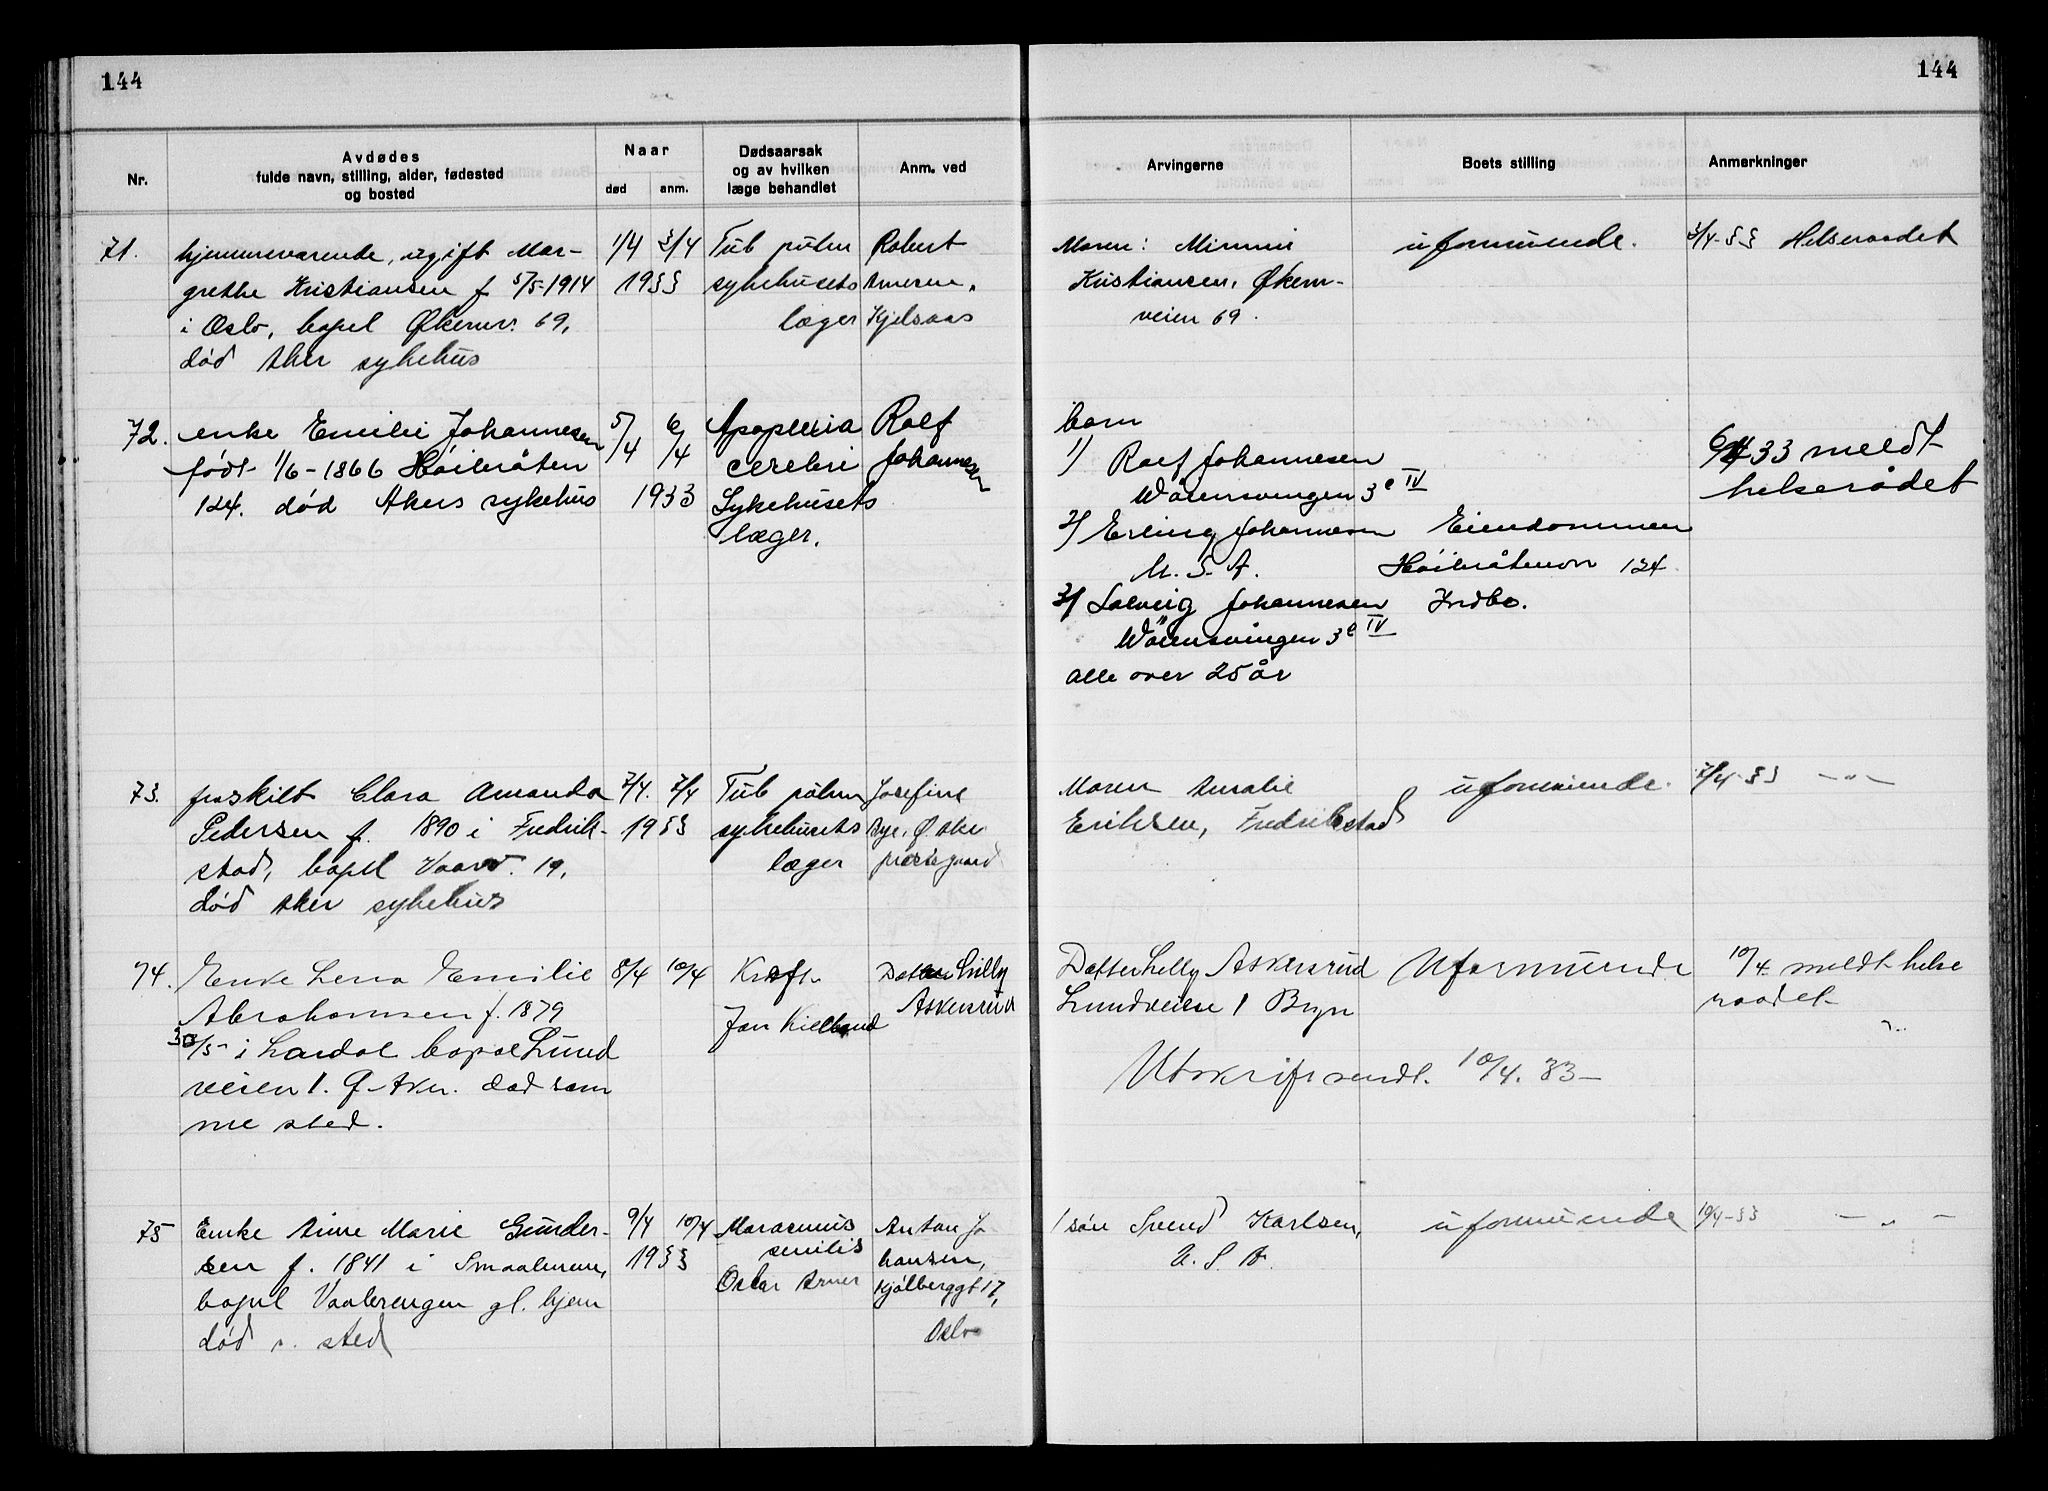 144
144
Nr.
Avdødes
fulde navn, stilling, alder, fødested
og bosted
Naar
død
anm.
Dødsaarsak
og av hvilken
læge behandlet
Anm. ved
Arvingerne
Boets stilling
Anmerkninger
71.
hjemmeværende, ugift Mar-
grethe Kristiansen f 5/5-1914
i Oslo, bopel Økernv. 69,
død Aker sykehus
1/4 3/4
1933
Tub pulm
sykehusets
læger
Robert
Arnesen,
Kjelsaas
Moren: Minnie
Kristiansen, Økern-
veien 69.
uformuende.
3/4-33 Helseraadet
72.
enke Emilie Johannesen
født 1/6-1866 Høibråten
124. død Akers sykehus
5/4 6/4
1933
Apoplexia
cerebri
Sykehusets
læger.
Rolf
Johannesen
barn
1) Rolf Johannesen
Wøiensvingen 3e IV
2) Erling Johannesen
U. S. A.
3) Solveig Johannesen
Wøiensvingen 3e IV
alle over 25 år
Eiendommen
Høibråtenvn 124.
Indbo.
6/4 33 meldt
helserådet
73.
fraskilt Clara Amanda
Pedersen f. 1890 i Fredrik-
stad, bopel Vaarv. 19,
død Aker sykehus
7/4. 7/4
1933
Tub pulm
sykehusets
læger
Josefine
Rye, Ø. Aker
prestegaard
Moren Amalie
Eriksen, Fredrikstad
uformuende.
7/4-33 -"-
74.
Enke Lena Emilie
Abrahamsen f. 1879
30/5 i Lardal bopæl Lund
veien 1. Ø-Aker. død sam
me sted.
8/4 10/4
Kræft.
Jan Kielland
Datter Lilly
Askerud
Datter Lilly Askersrud
Lundveien 1 Bryn
Uformuende
10/4 meldt helse
raadet
Utskrift sendt. 10/4. 33-
75
Enke Anne Marie Gunder-
sen f. 1841 i Smaalenene,
bopel Vaalerengen gl. hjem
død s. sted
9/4 10/4
1933
Marasmus
senilis
Oscar Arner
Anton Jo
hansen,
Kjølberggt 17,
Oslo
1 søn Svend Karlsen,
U. S. A.
uformuende
10/4-33 -"-